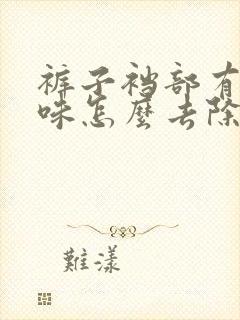 裤子裆部有
味怎麼去除
難漾